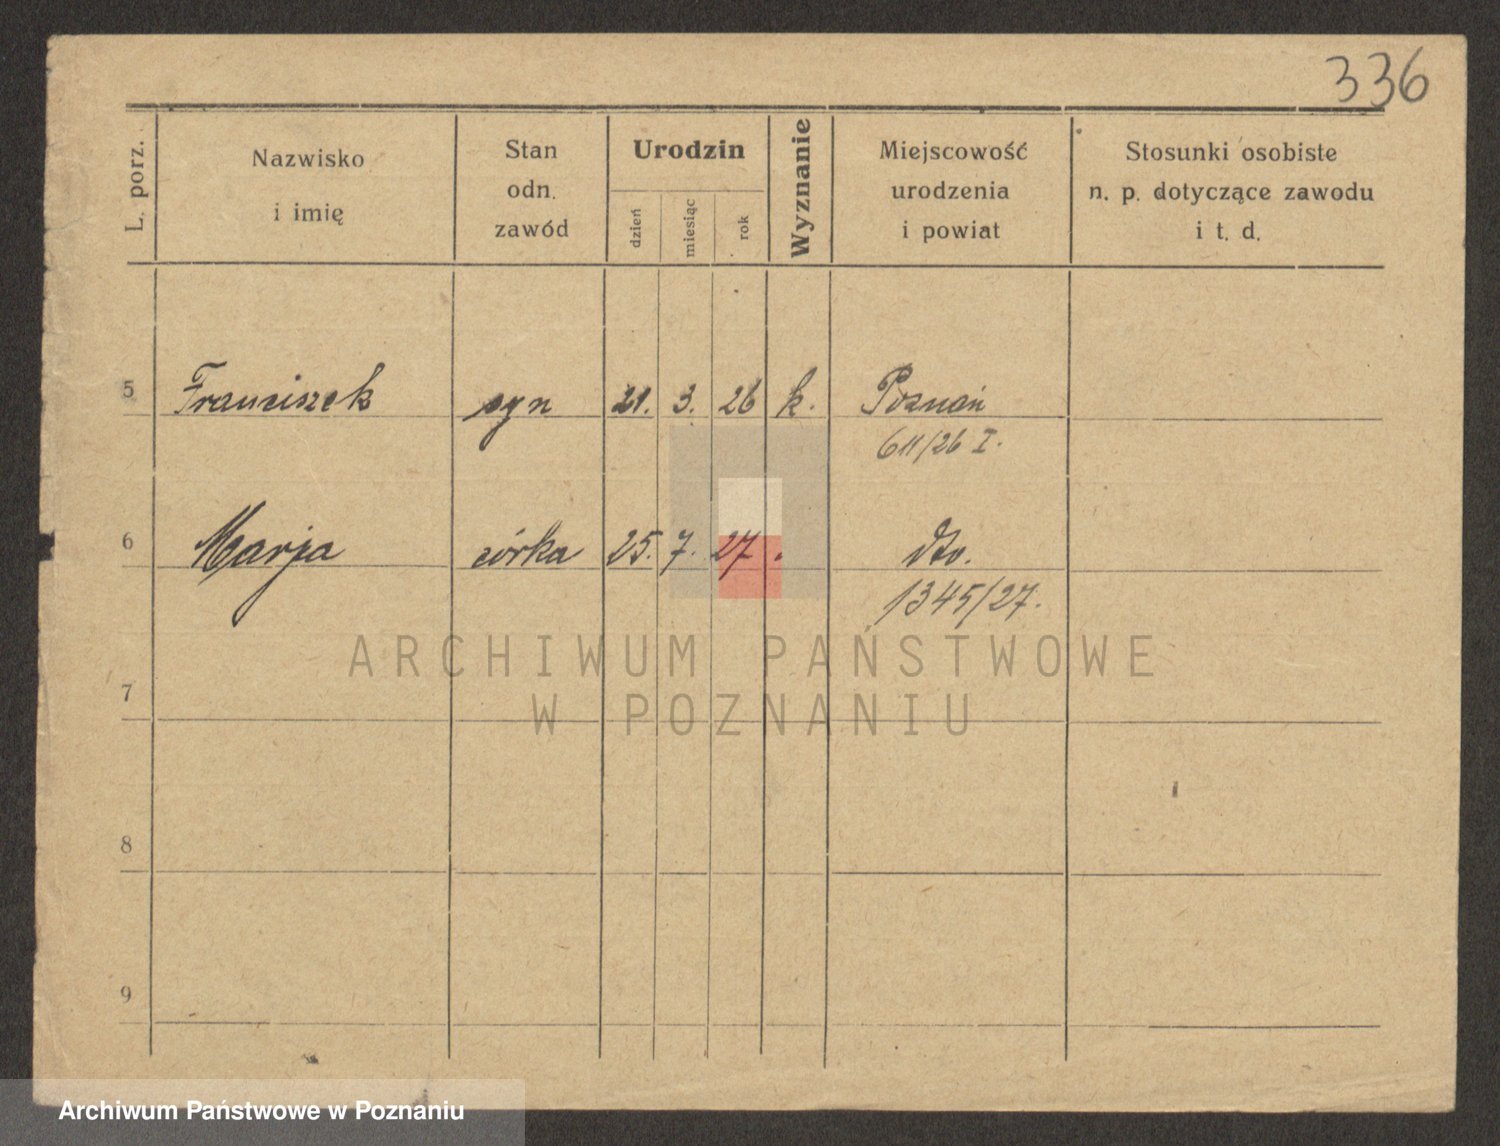 336
L. porz.
Nazwisko
i imię
Stan
odn.
zawód
Urodzin
dzień
miesiąc
rok
Wyznanie
Miejscowość
urodzenia
i powiat
Stosunki osobiste
n. p. dotyczące zawodu
i t. d.
5 Franciszek syn 21. 3. 26 k. Poznań
611/26 I.
6 Marja córka 25. 7. 27 . dto.
1345/27.
ARCHIWUM PAŃSTWOWE
7
W POZNANIU
8
9
Archiwum Państwowe w Poznaniu